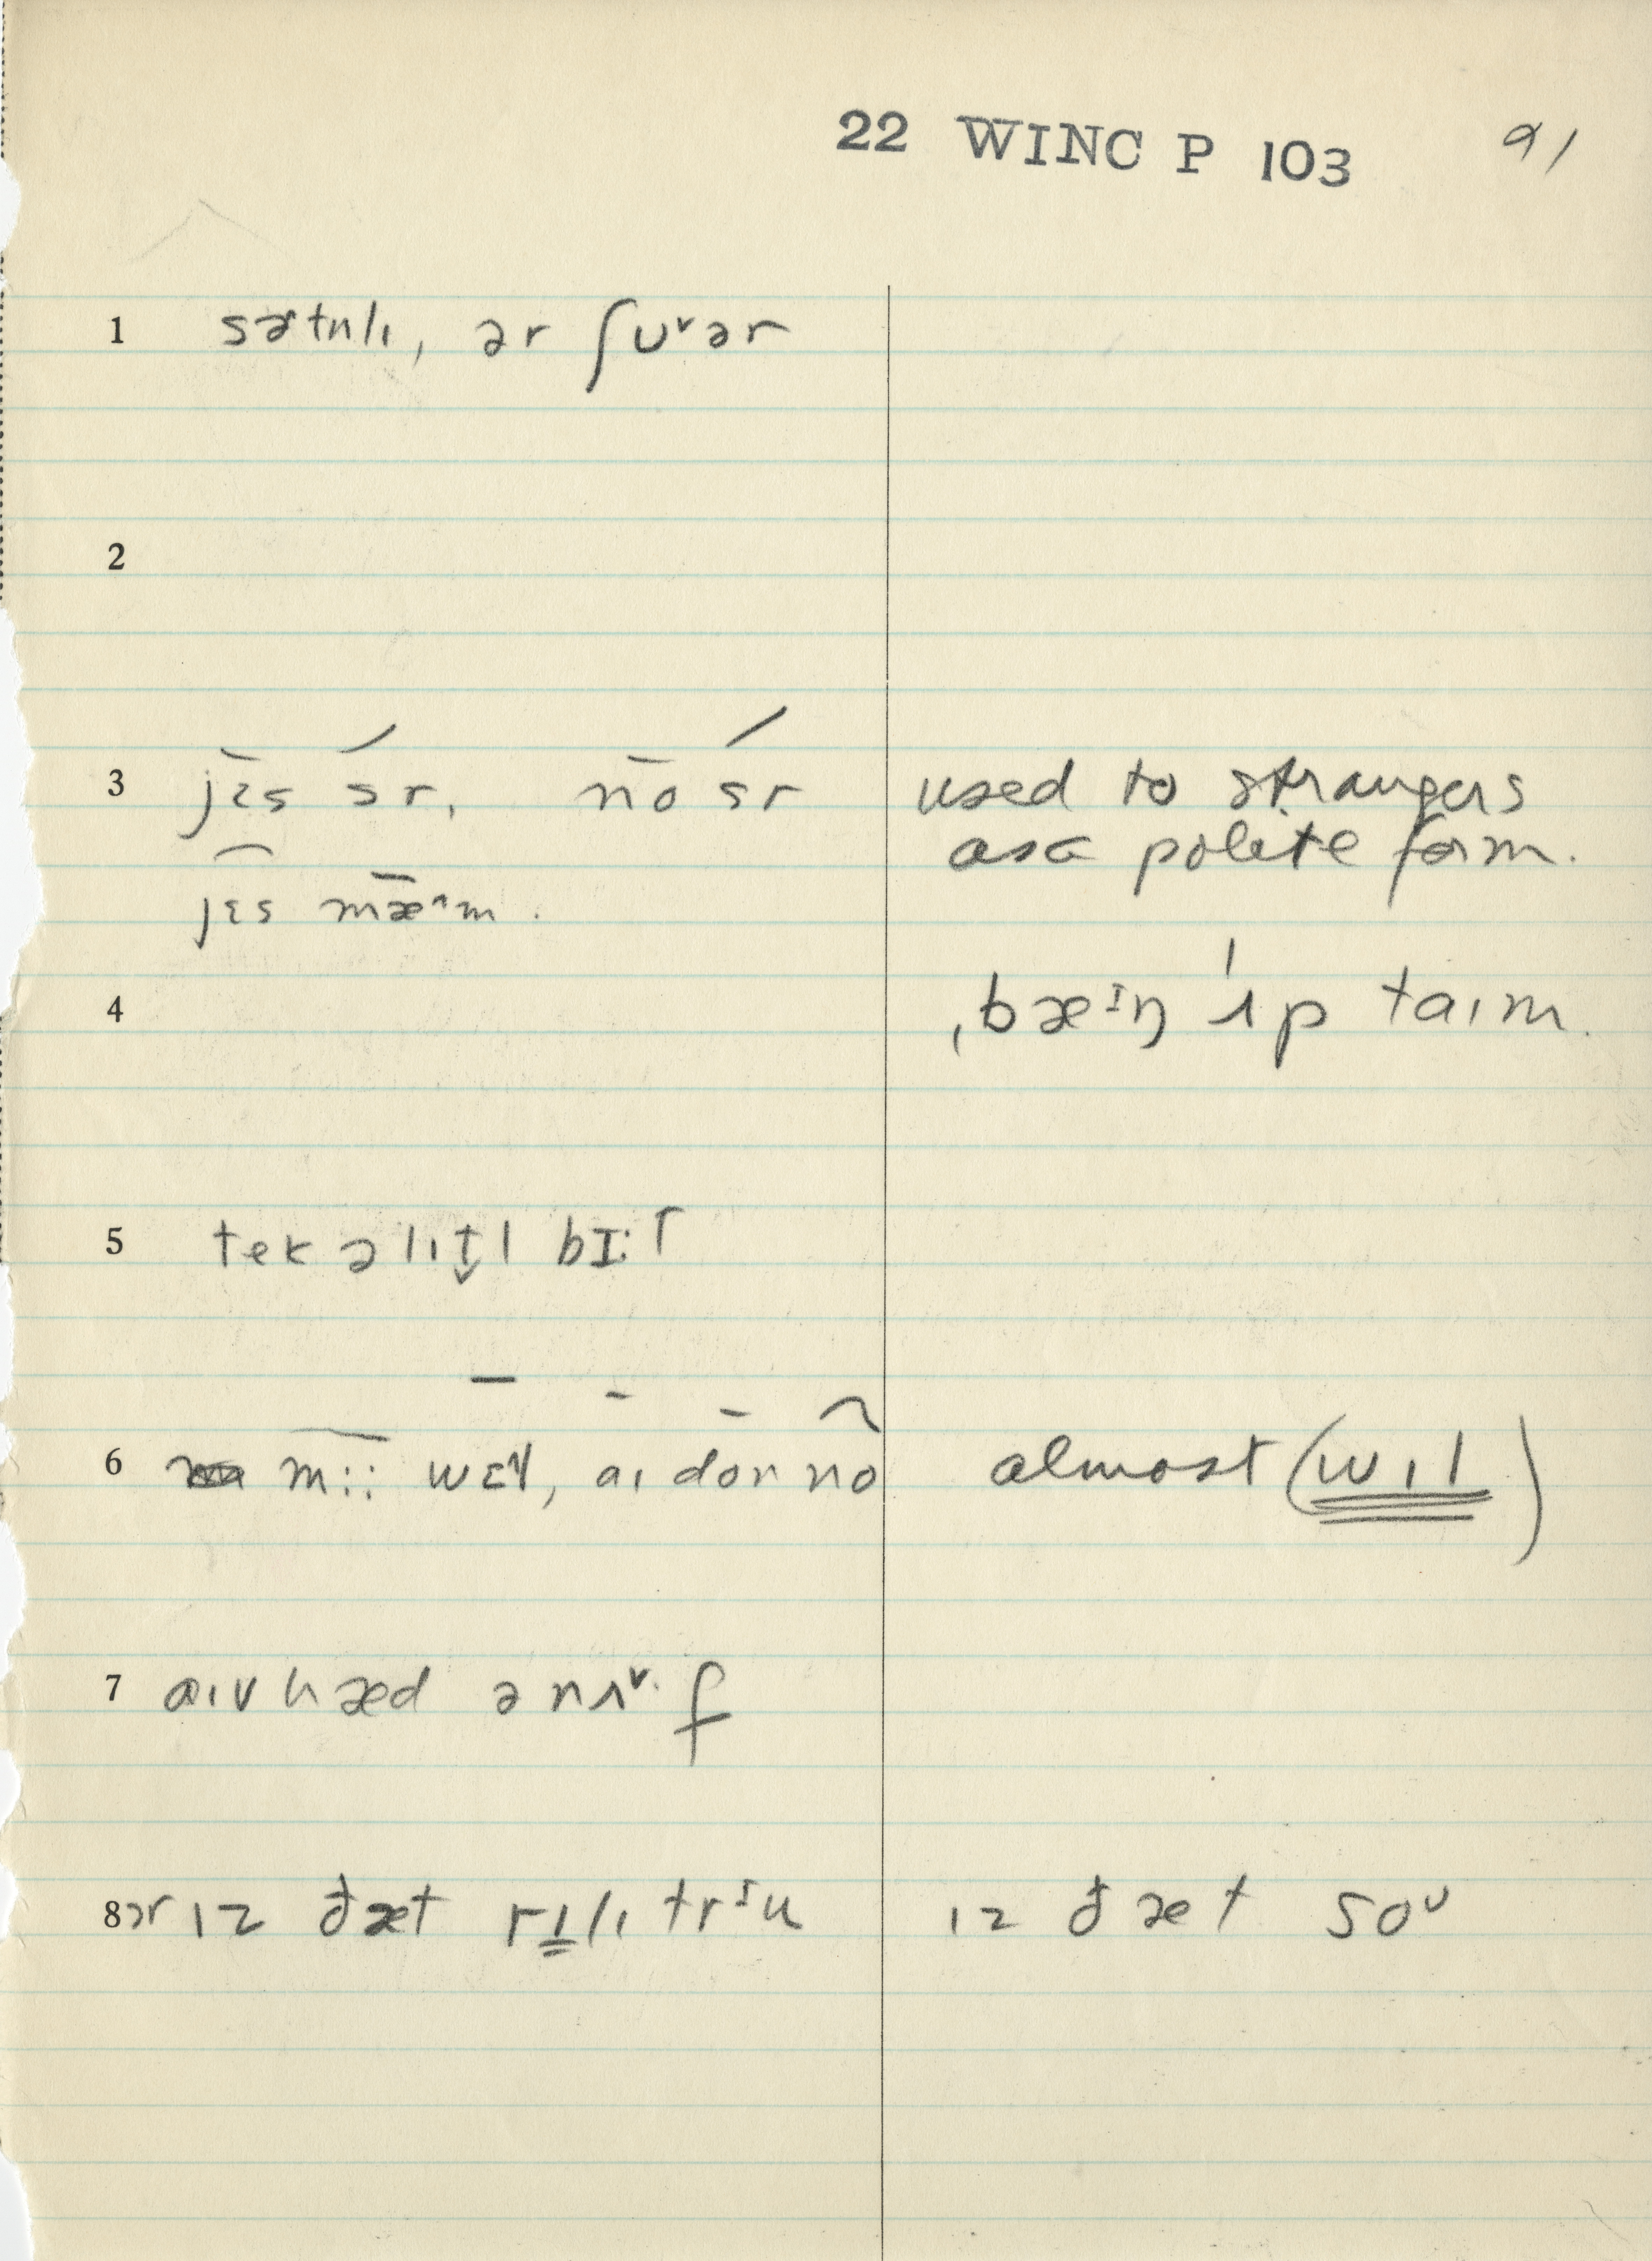 22 WINC P 103 91
1 sɚtnlɪ, ər ʃᴜ˅ər
2
3 jɛ̄s sŕ, nō sŕ used to strangers
as a polite form.
jɛ̂s mǣ˄m.
4 ˌbæᶦŋ ˈʌp taɪm.
5 tek ə lɪt̬l bɪːt
6 m:: wɛl, aɪ don no almost (wɪl)
7 aɪv hæd ənʌ˅·f
8 ər ɪz ðæt rɪlɪ trᶦu ɪz ðæt soᶸ